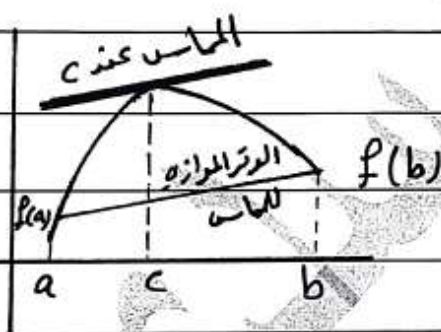 المماس عند c
الوتر الموازي
للماس
f(a)
f(b)
a
c
b